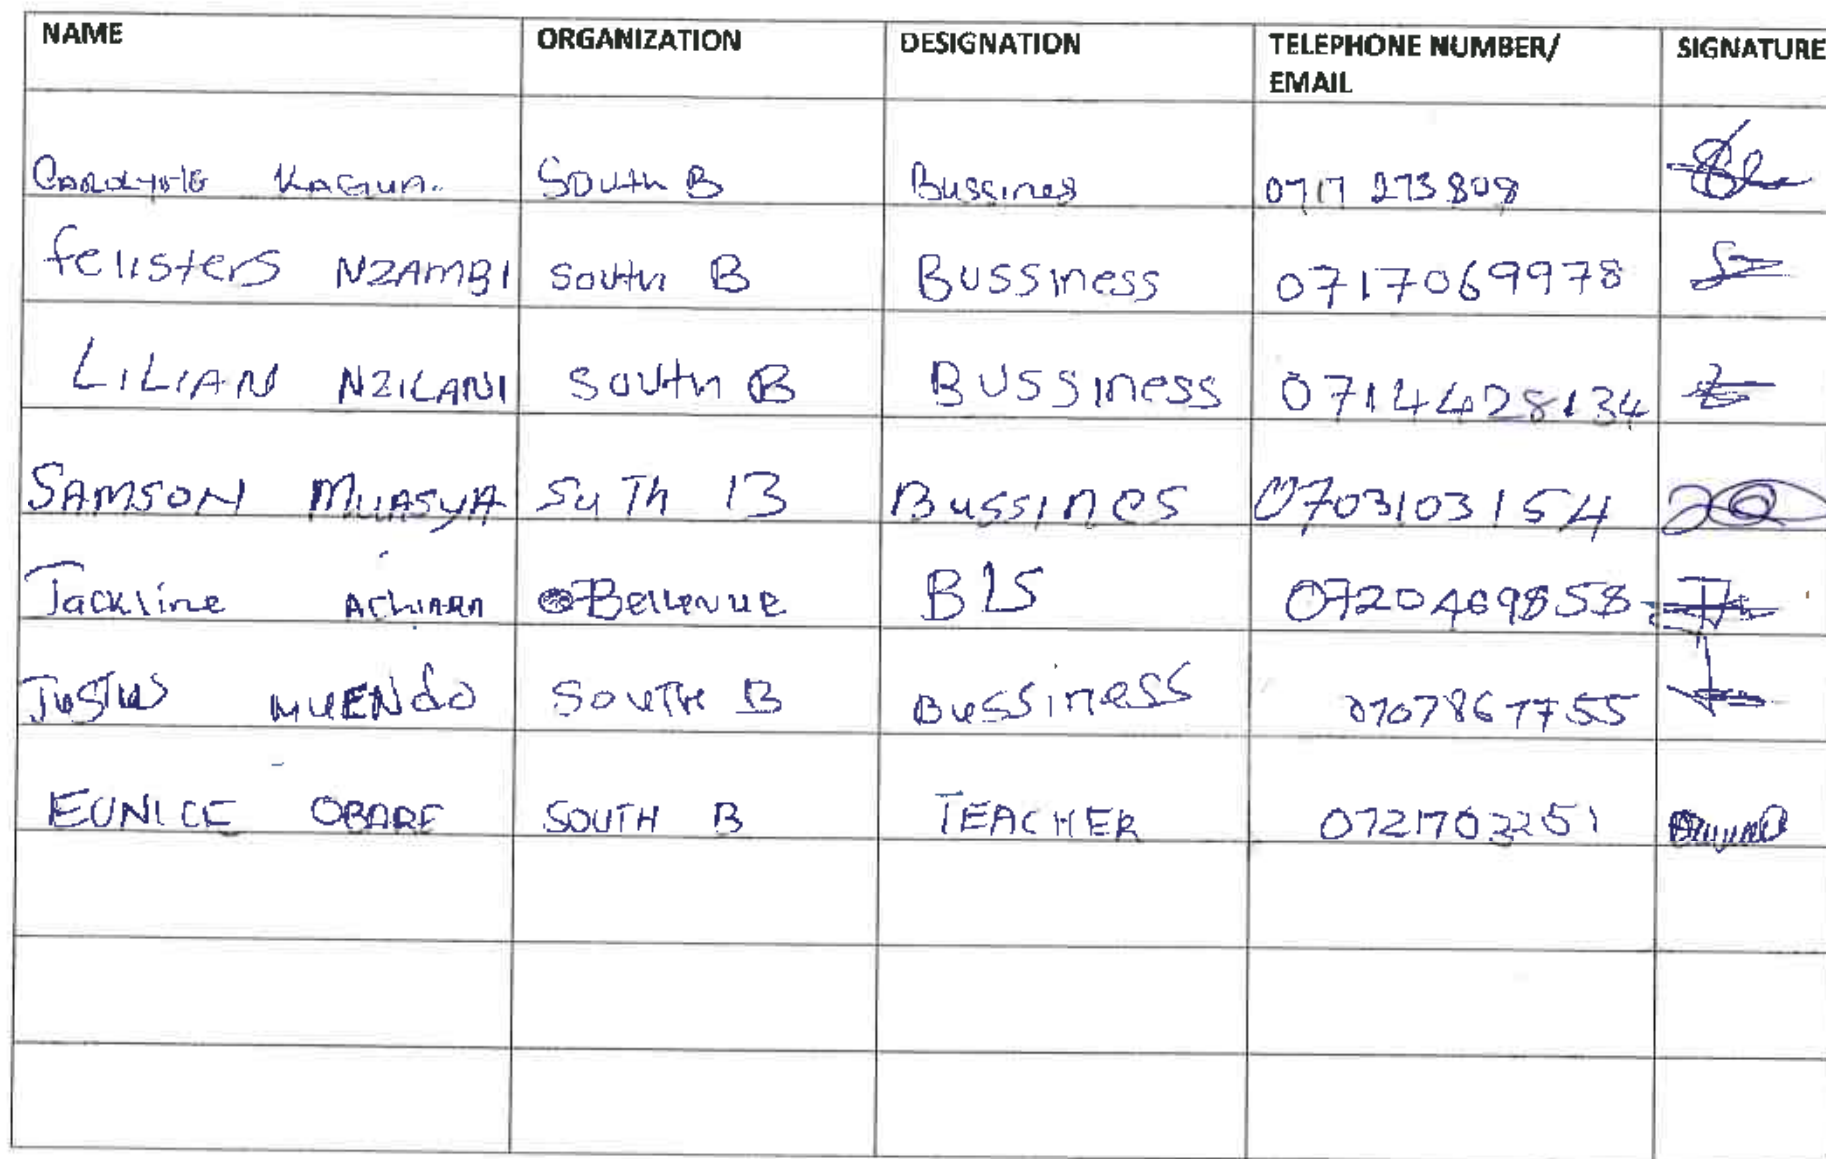 NAME ORGANIZATION DESIGNATION TELEPHONE NUMBER/ SIGNATURE
EMAIL
South B Bussines 0717 273 808
felisters NZAMBI South B BUSSiness 0717069978
LILIAN NZILANI South B BUSSiness 0714428134
SAMSON MUASYA SuTh B Bussines 0703103154
Jackline Bellevue 0720469858
Justus MUENdo SouTH B BUSSiness 0707867755
EUNICE OBARE SOUTH B TEACHER 0721703251